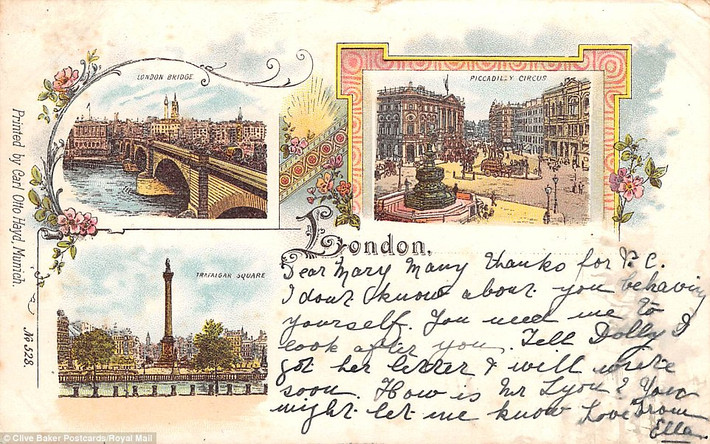 LONDON BRIDGE
PICCADILLY CIRCUS
Printed by Carl Otto Hayd, Munich.
No 528.
TRAFALGAR SQUARE
London.
Dear Mary Many thanks for P.C.
I dont know about you behaving
yourself. You need me to
look after you. Tell Dolly I
got her letter & will write
soon. How is Mr Lyon? You
might let me know Love from
Ella.
© Clive Baker Postcards/Royal Mail